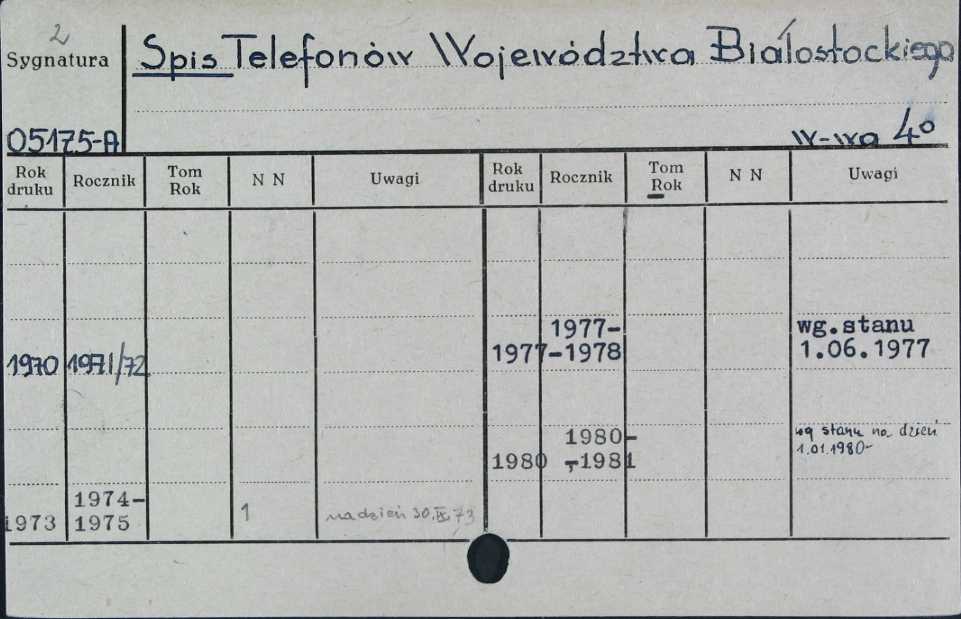 2
Sygnatura
Spis Telefonów Województwa Białostockiego
05175-A
W-wa 4°
Rok druku Rocznik Tom Rok N N Uwagi Rok druku Rocznik Tom Rok N N Uwagi
1970 1971/72
1973 1974-1975 1 na dzień 30.IX.73
1977 1977-1978 wg.stanu 1.06.1977
1980 1980-1981 wg stanu na dzień 1.01.1980-